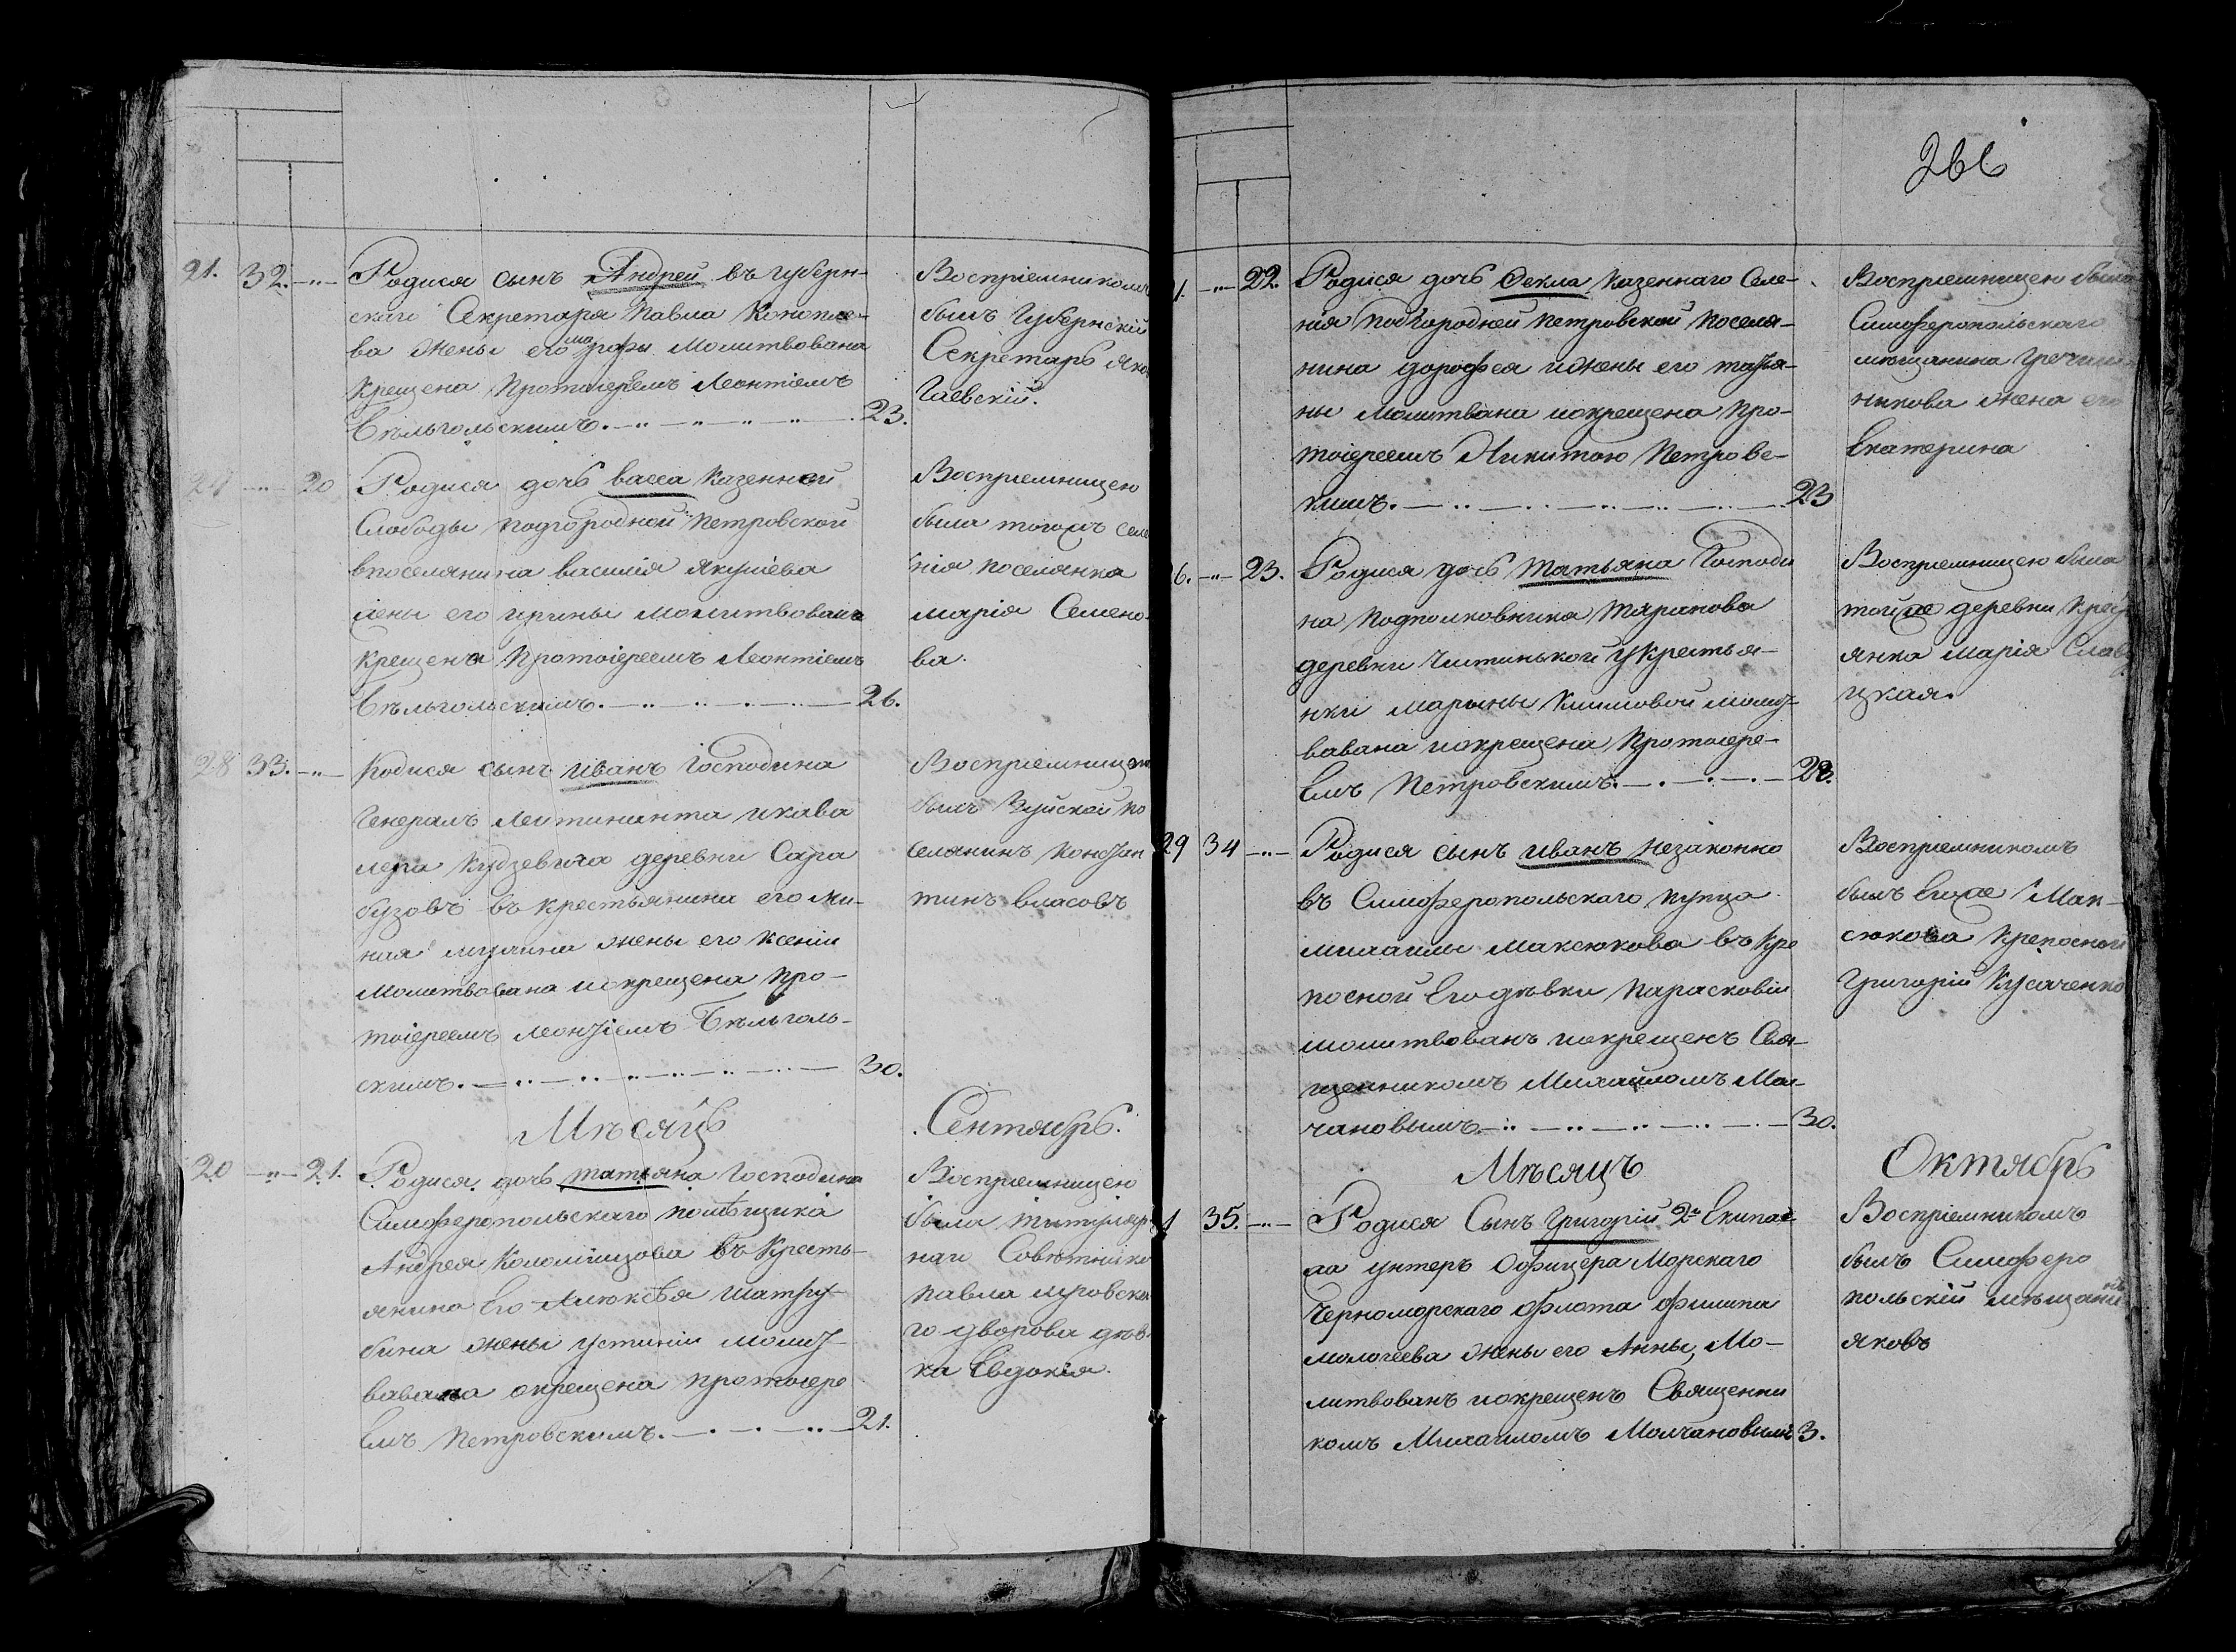 21. 32. Родися сынъ Андрей въ Губерн-
скаго Секретаря Павла Конопле-
ва жены его марфы Молитвована
крещена Протоіереемъ Леонтіемъ
Бѣльгольскимъ. 23.
Воспріемникомъ
былъ Губернскій
Секретарь
Гаевскій.
24 20 Родися дочь васса казенной
Слободы подгородной петровской
впоселянина василія Якушева
жены его ирины молитвована
крещена Протоіереемъ Леонтіемъ
Бѣльгольскимъ. 26.
Воспріемницею
была тогожъ селе
нія поселянка
марія Семено-
ва.
28 33. Родися сынъ иванъ Господина
Генералъ Лейтинанта икава
лера Кудзевича деревни Сара
бузовъ въ крестьянина его ми-
ная жены его ксеніи
Молитвована икрещена про-
тоіереемъ леонтіемъ Бѣльголь-
скимъ. 30.
Воспріемницею
былъ Зуйской по
селянинъ констан
тинъ власовъ
Мѣсяцъ Сентябрь.
20 21. Родися дочь татіяна Господина
Симферопольскаго помѣщика
Андрея Коломійцова въ Кресть-
янина Его Алюксѣя шатру-
бина жены устиніи молит-
вавана окрещена протоіере
Емъ Петровскимъ. 21.
Воспріемницею
была титуляр
наго Совѣтника
павла
го дворова дѣв-
ка Евдокія.
266
1. 22. Родися дочь Фекла казеннаго Селе-
нія подгородней петровской поселя-
нина дорофея ижены его татья-
ны молитвана икрещена про-
тоіереемъ Никитою Петровс-
кимъ. 23
Воспріемницею была
Симферопольскаго
мещанина Гречиш-
никова жена его
Екатерина
6. 23. Родися дочь татьяна Господи
на подполковника Таранова
деревни Чистинькой укрестья-
нки марины Климовой молит-
вавана икрещена Протоіере-
Емъ Петровскимъ. 28.
Воспріемницею была
тойже деревни крест
янка марія Слав
цкая.
29 34 Родися сынъ иванъ незаконно
въ Симферопольскаго купца
михаилы максюкова въ кре
посной Его дѣвки параскови
молитвованъ икрещенъ Свя-
щенникомъ Михаиломъ Мол-
чановымъ 30.
Воспріемникомъ
былъ Егоже Мак-
сюкова крепосной
Григорій Кусаченко
Мѣсяцъ Октябрь
1 35. Родися Сынъ Григорій 2го Екипаж
жа унтеръ Офицера Морскаго
Черноморскаго Флота Филипа
мологеева жены его Анны, Мо-
литвованъ икрещенъ Священни
комъ Михаиломъ Молчановымъ 3.
Воспріемникомъ
былъ Симферо
польскій мѣщанинъ
яковъ